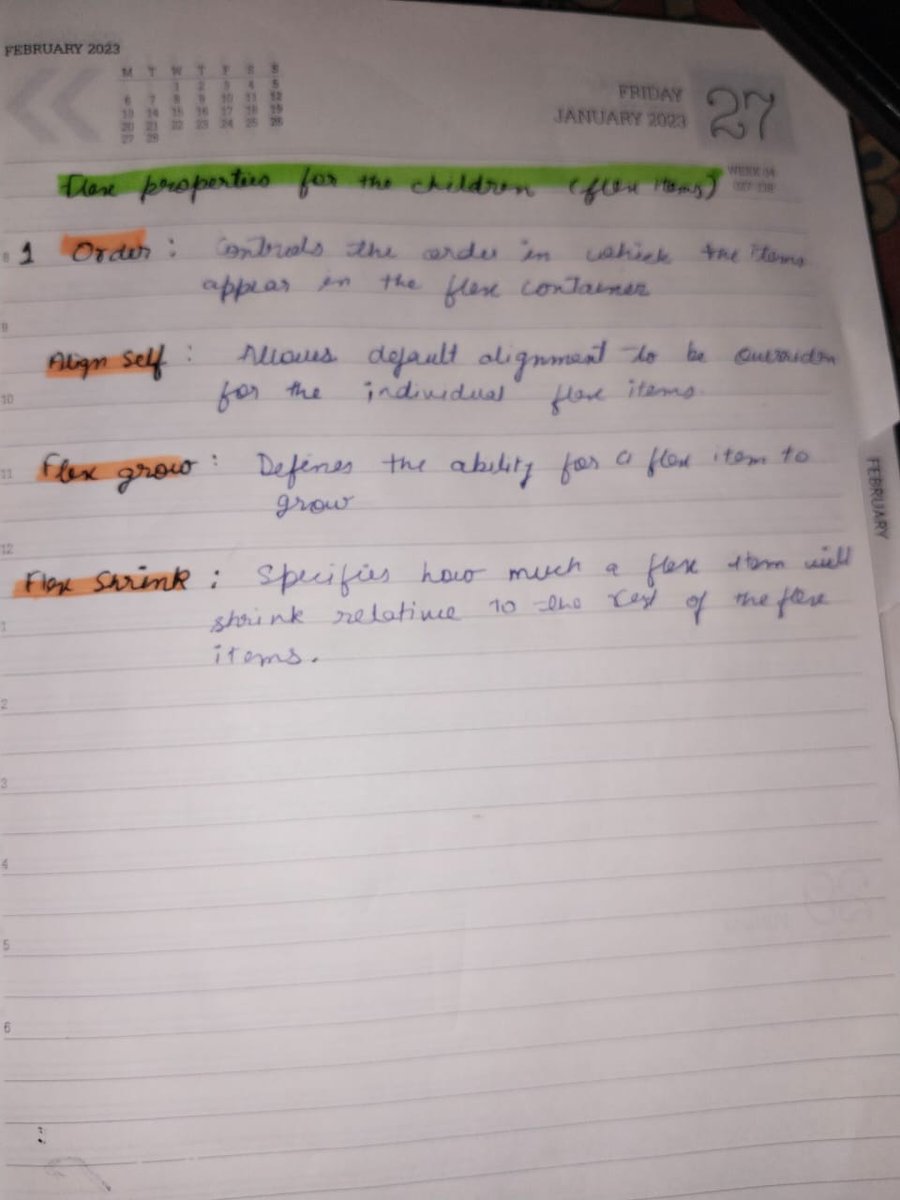 FEBRUARY 2023
M T W T F S S
1 2 3 4 5
6 7 8 9 10 11 12
13 14 15 16 17 18 19
20 21 22 23 24 25 26
27 28
FRIDAY
JANUARY 2023
27
WEEK 04
Flex properties for the children (flex items)
8
1 Order : Controls the order in which the items
appear in the flex container
9
Align Self : Allows default alignment to be
10
for the individual flex items.
11
Flex grow : Defines the ability for a flex item to
grow
FEBRUARY
12
Flex Shrink : Specifies how much a flex item will
1
shrink relative to the rest of the flex
items.
2
3
4
5
6